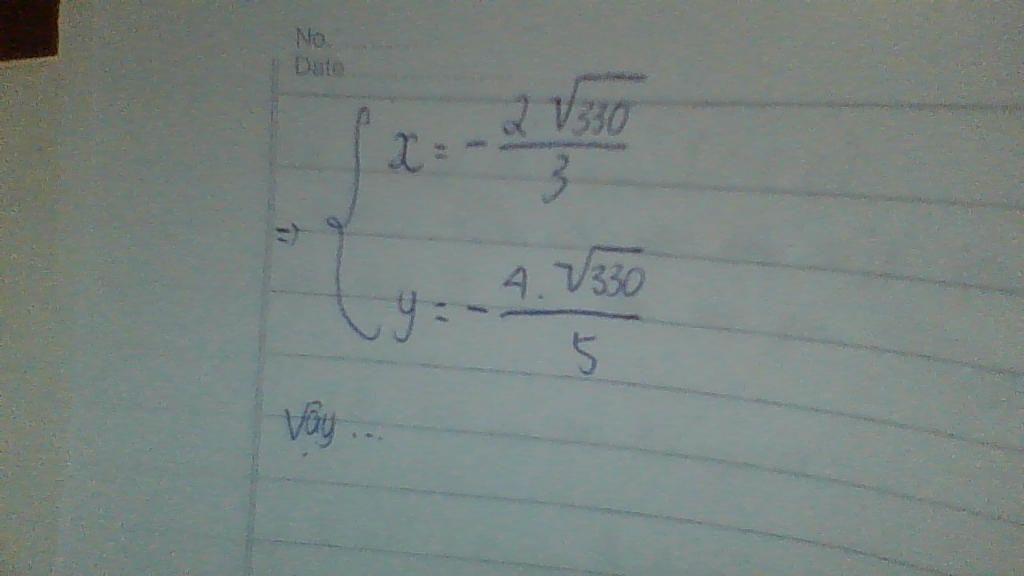 No.
Date
⇒ { x = - 2√330 / 3
y = - 4.√330 / 5
Vậy ...